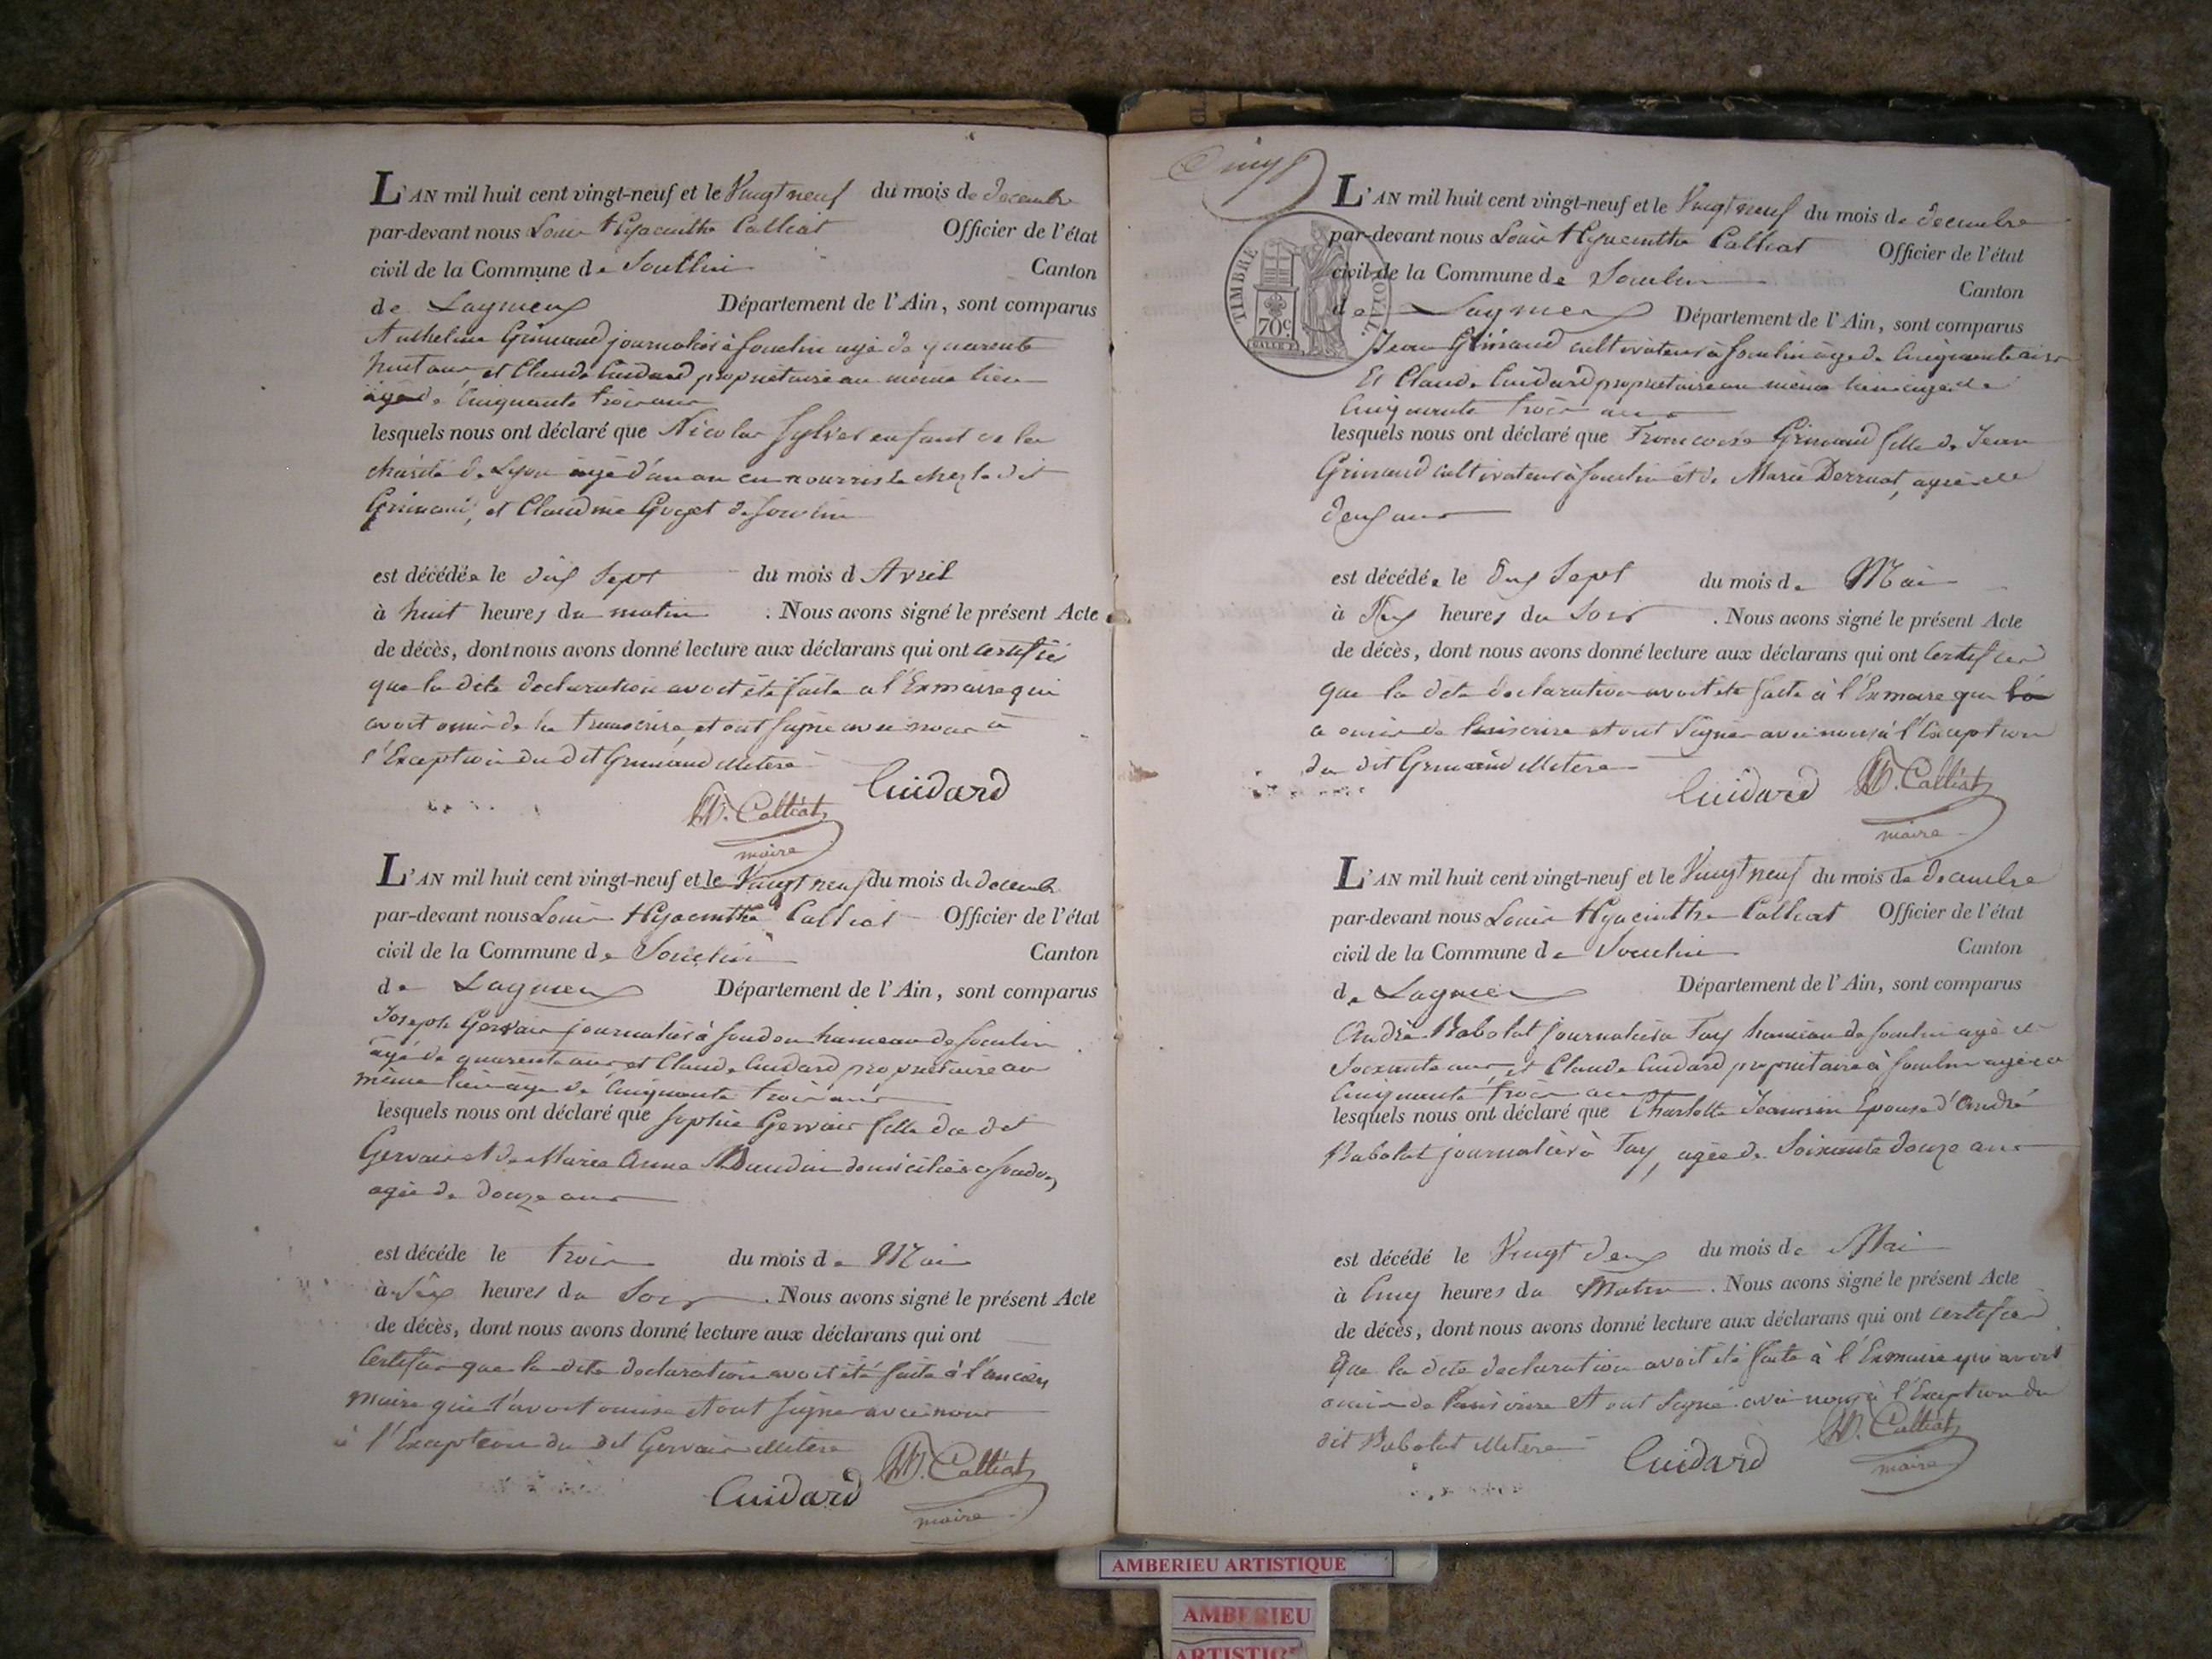 L'AN mil huit cent vingt-neuf et le Vingt neuf du mois de decembre
par-devant nous Louis Hyacinthe Calliat Officier de l'état
civil de la Commune de Souclin Canton
de Lagnieu Département de l'Ain, sont comparus
Anthelme Grimaud journalier à souclin agé de quarente
huit ans, et Claude Cuidard propriétaire au même lieu
agé de Cinquante trois ans
lesquels nous ont déclaré que Nicolas enfant de la
charité de Lyon agé d'un an en nourris chez le dit
Grimaud, et Claudine Goyet de souclin
est décédée le dix Sept du mois d Avril
à huit heures du matin . Nous avons signé le présent Acte
de décès, dont nous avons donné lecture aux déclarans qui ont certifiés
que la dite declaration avoit été faite a l'Exmaire qui
avoit omis de la transcrire, et ont signé avec nous a
l'Exception du dit Grimaud illetéré
Cuidard
H. Calliat
maire
L'AN mil huit cent vingt-neuf et le Vingt neuf du mois de decembre
par-devant nous Louis Hyacinthe Calliat Officier de l'état
civil de la Commune de Souclin Canton
de Lagnieu Département de l'Ain, sont comparus
Joseph Gervais journalier à soudon hameau de souclin
agé de quarente ans, et Claude Cuidard propriétaire au
même lieu agé de Cinquante trois ans
lesquels nous ont déclaré que sophie Gervais fille du dit
Gervais et de Marie Anne domiciliés a soudon
agée de douze ans
est décéde le trois du mois de Mai
à Six heures du Soir . Nous avons signé le présent Acte
de décès, dont nous avons donné lecture aux déclarans qui ont
Certifiés que la dite declaration avoit été faite à l'ancien
maire qui l'avoit omise et ont signés avec nous
à l'Exception du dit Gervais illetéré
H. Calliat
Cuidard
maire
Cinq
TIMBRE ROYAL
70c
L'AN mil huit cent vingt-neuf et le Vingt neuf du mois de decembre
par-devant nous Louis Hyacinthe Calliat Officier de l'état
civil de la Commune de Souclin Canton
de Lagnieu Département de l'Ain, sont comparus
Jean Grimaud cultivateur à souclin agé de Cinquante ans
Et Claude Cuidard propriétaire au même lieu agé de
Cinquante trois ans
lesquels nous ont déclaré que Francoise Grimaud fille de Jean
Grimaud cultivateur à souclin et de Marie Derruat, agée de
deux ans
est décédée le dix Sept du mois de Mai
à Six heures du Soir . Nous avons signé le présent Acte
de décès, dont nous avons donné lecture aux déclarans qui ont certifiés
que la dite declaration avoit été faite à l'Exmaire qui l'a
a omis de l'inscrire et ont Signés avec nous à l'Exception
du dit Grimaud illetéré
Cuidard H. Calliat
maire
L'AN mil huit cent vingt-neuf et le Vingt neuf du mois de decembre
par-devant nous Louis Hyacinthe Calliat Officier de l'état
civil de la Commune de Souclin Canton
de Lagnieu Département de l'Ain, sont comparus
André Babolat journalier a Fay hameau de souclin agé de
Soixante ans, et Claude Cuidard propriétaire à souclin agé de
Cinquante trois ans
lesquels nous ont déclaré que Charlotte Epouse d'André
Babolat journalier à Fay, agée de Soixante douze ans
est décédé le Vingt deux du mois de Mai
à Cinq heures du Matin . Nous avons signé le présent Acte
de décès, dont nous avons donné lecture aux déclarans qui ont certifiés
que la dite declaration avoit été faite à l'Exmaire qui avoit
omis de l'inscrire et ont Signé avec nous à l'Exception du
dit Babolat illetéré
Cuidard H. Calliat
maire
AMBERIEU ARTISTIQUE
AMBERIEU
ARTISTIQUE